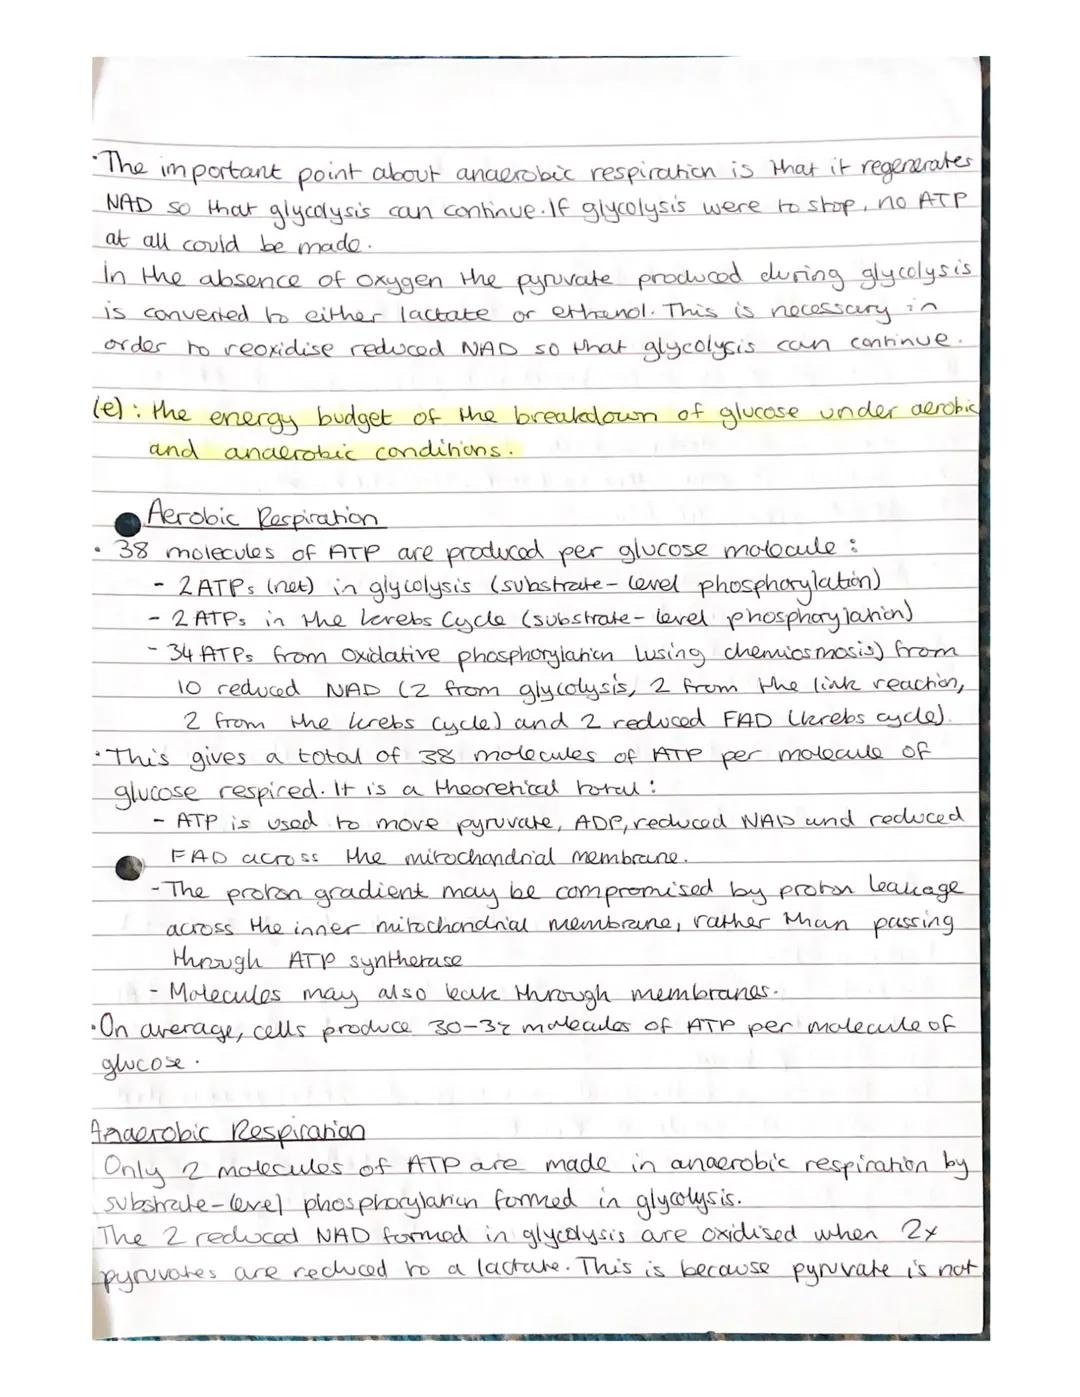 ·The important point about anaerobic respiration is that it regenerates
NAD so that glycolysis can continue. If glycolysis were to stop, no ATP
at all could be made.
In the absence of oxygen the pyruvate produced during glycolysis
is converted to either lactate or ethanol. This is necessary in
order to reoxidise reduced NAD so that glycolysis can continue.
(e): the energy budget of the breakdown of glucose under aerobic
and anaerobic conditions.
Aerobic Respiration
· 38 molecules of ATP are produced per glucose molecule:
- 2 ATPs (net) in glycolysis (substrate-level phosphorylation)
- 2 ATPs in the krebs Cycle (substrate-level phosphorylation)
- 34 ATPs from oxidative phosphorylation (using chemiosmosis) from
10 reduced NAD (2 from glycolysis, 2 from the link reaction,
2 from the krebs cycle) and 2 reduced FAD (krebs cycle).
·This gives a total of 38 molecules of ATP per molecule of
glucose respired. It is a theoretical total:
- ATP is used to move pyruvate, ADP, reduced NAD and reduced
FAD across the mitochondrial membrane.
- The proton gradient may be compromised by proton leakage
across the inner mitochondrial membrane, rather than passing
through ATP synthetase
- Molecules may also leak through membranes.
·On average, cells produce 30-32 molecules of ATP per molecule of
glucose.
Anaerobic Respiration
Only 2 molecules of ATP are made in anaerobic respiration by
substrate-level phosphorylation formed in glycolysis.
The 2 reduced NAD formed in glycolysis are oxidised when 2x
pyruvates are reduced to a lactate. This is because pyruvate is not